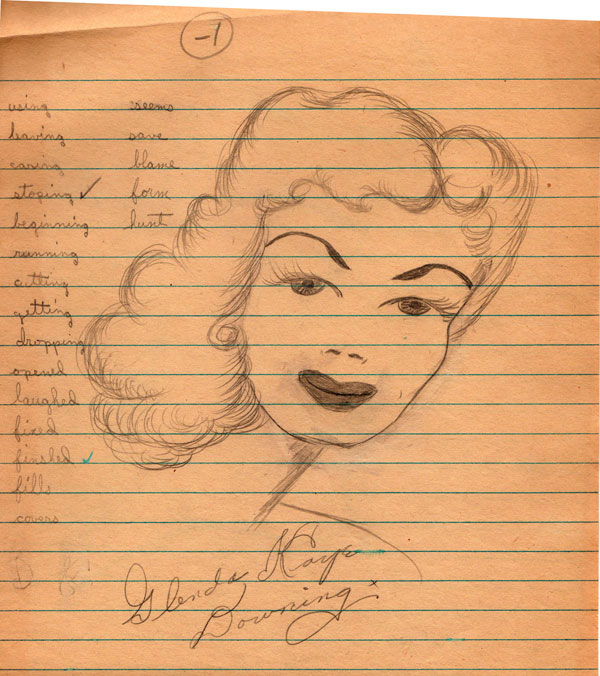 -1
using
leaving
caring
stoping ✓
beginning
running
cutting
getting
dropping
opened
laughed
fixed
finshed ✓
fills
covers
seems
save
blame
form
hunt
Glenda Kaye
Downing